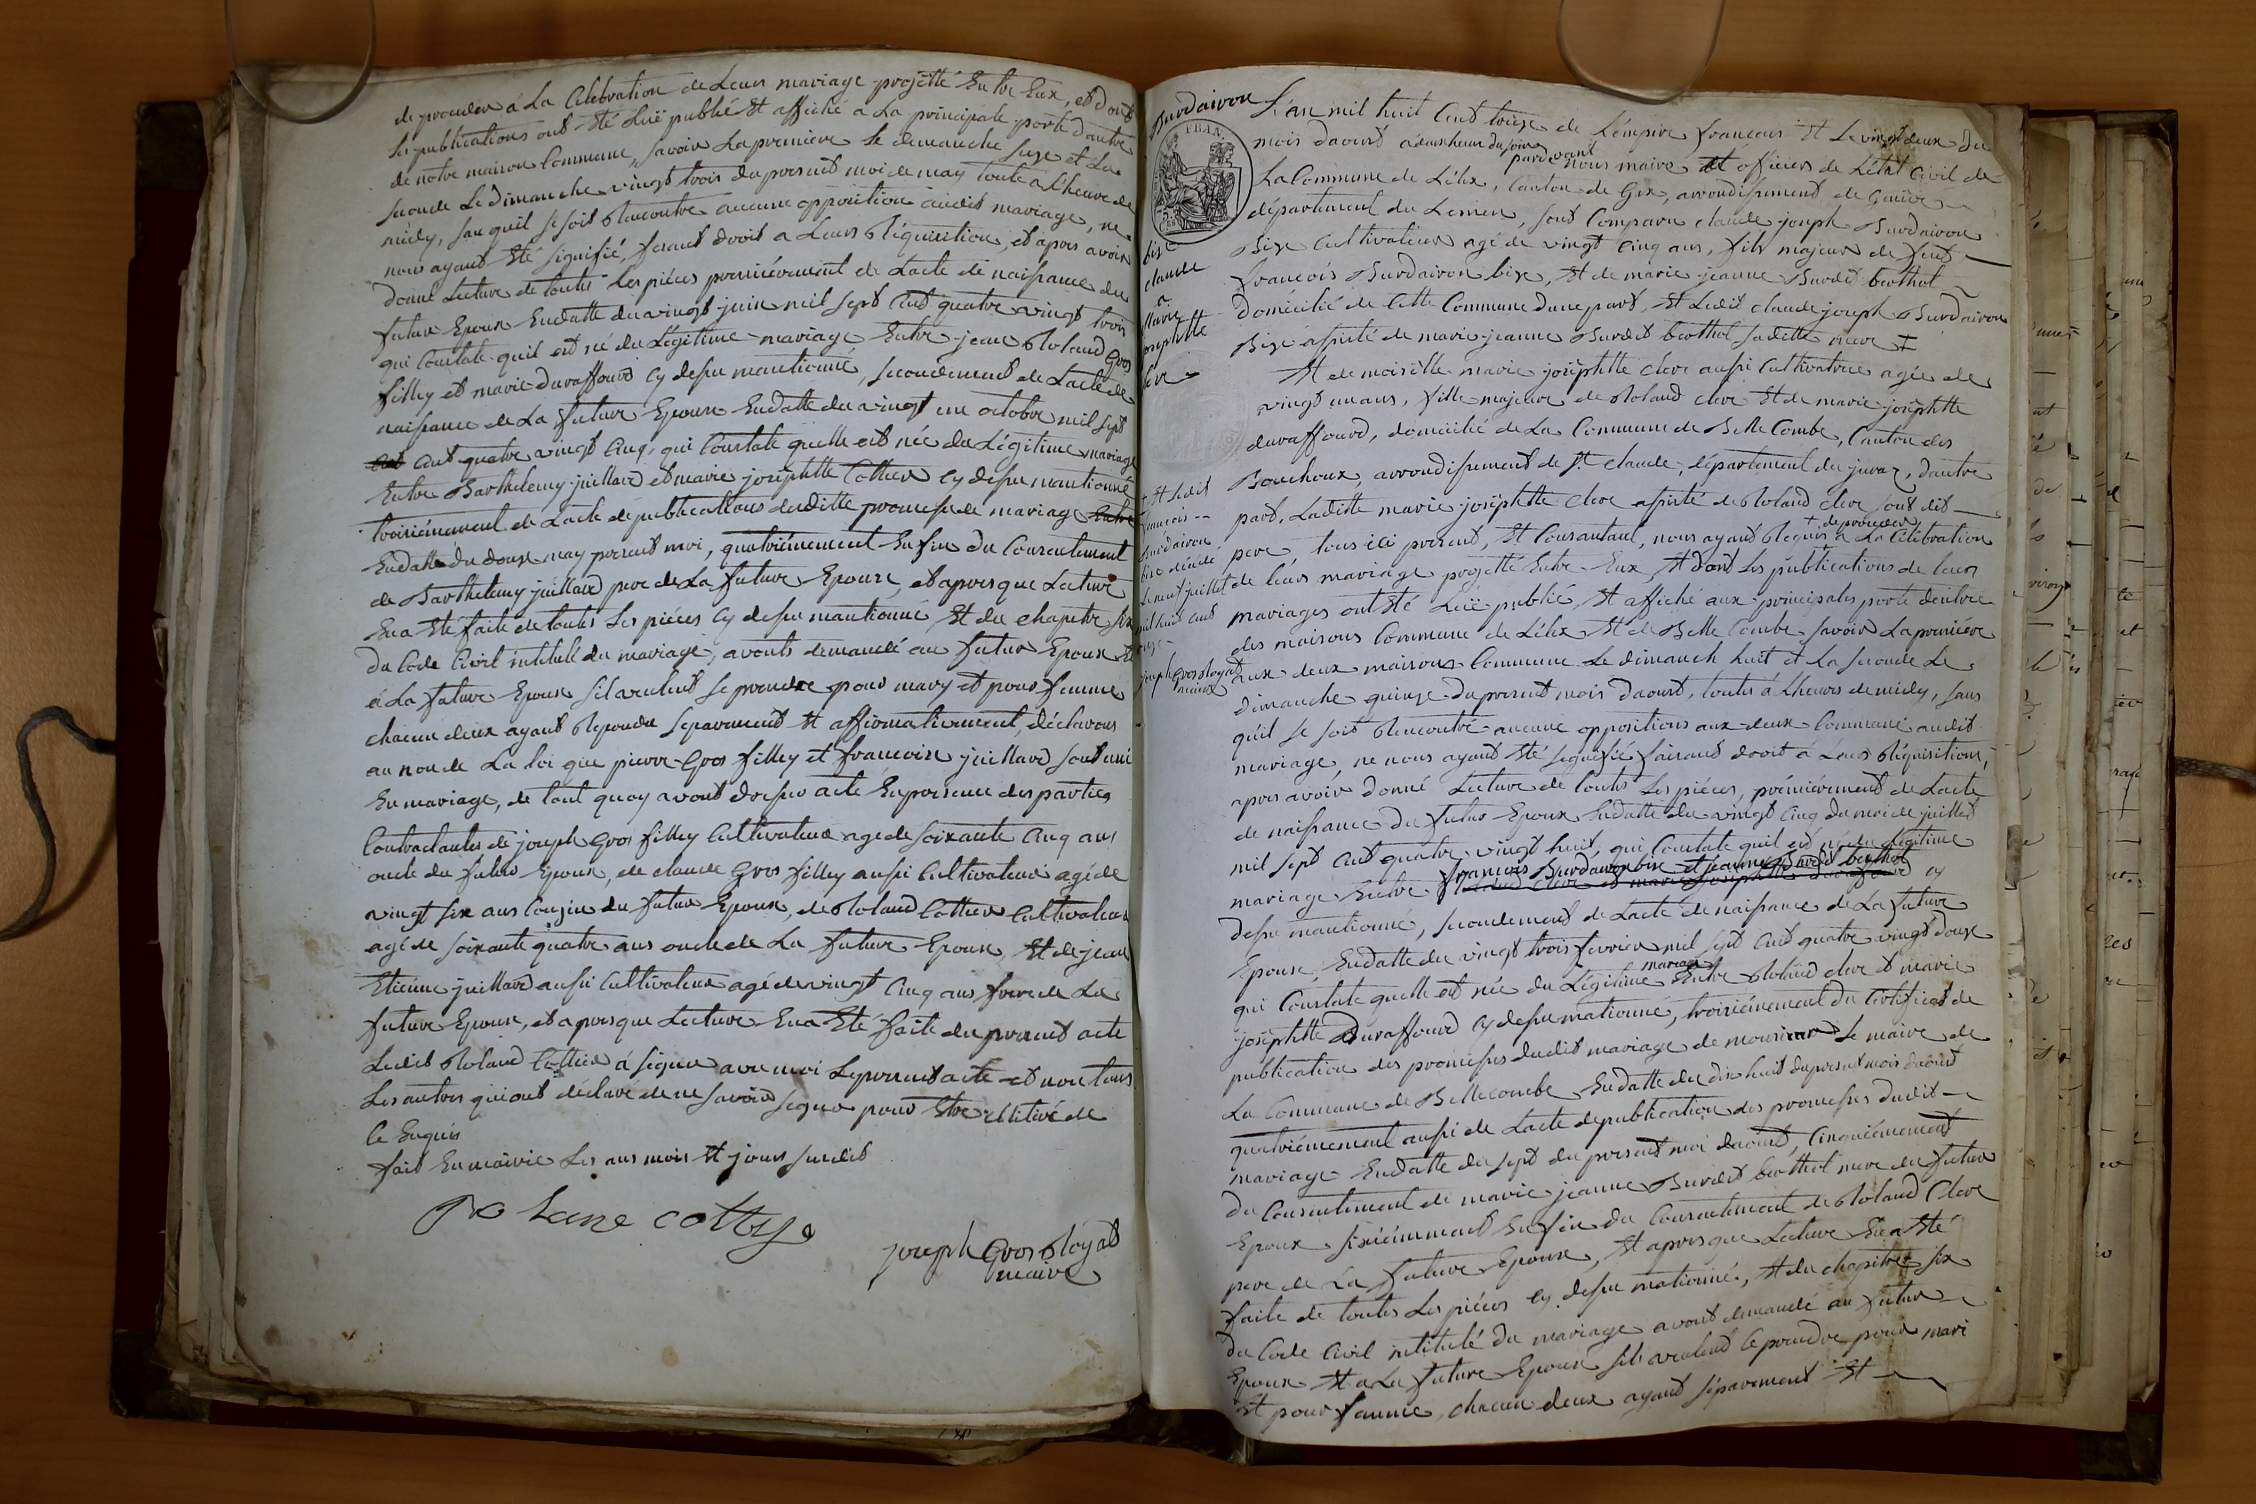 de proceder à La Célébration de Leurs mariage projetté Entre Eux, et dont
Les publications ont Eté Luë publié Et affiché a La principale porte d'entre
de notre maison Commune, savoir La premiere Le dimanche seize et La
seconde Le dimanche vingt trois du present moi de may toute a Lheure de
midy, sans quil se soit Rencontre aucune opposition audit mariage, ne
nous ayant Eté signifié, fesant droit a Leurs Réquisition, et apres avoir
donné Lecture de toutes Les piéces premiérement de Lacte de naissance du
futur Epoux Endatte du vingt juin mil sept Cent quatre vingt trois
qui Constate quil est né du Légitime mariage Entre jean Roland Gros
fillex et marie duraffourd cy dessu mantionné, secondement de Lacte de
naissance de La future Epouse Endatte du vingt un octobre mil sept
Cent quatre vingt Cinq, qui Constate quelle est née du Légitime mariage
Entre Barthelemy juillard et marie joséphtte Cottier cy dessu mantionné
troisiémement de Lacte de publications dudit promesse de mariage Entre
Endatte du douze may present moi, quatriémement Enfin du Consentement
de Barthelemy juillard pere de La future Epouse, et apres que Lecture
En a Eté faite de toutes Les piéces cy dessu mantionné Et du chapitre six
du Code Civil intitulé du mariage, avons demandé au futur Epoux Et
a La future Epouse sil veulent se prendre pour mary et pour femme
chacun deux ayant Repondu separement Et affirmativement, déclarons
au nom de La loi que pierre Gros fillex et francoise juillard sont unie
En mariage, de tout quoy avons dressé acte En presence des parties
Contractantes de joseph Gros fillex Cultivateur age de soixante Cinq ans
oncle du futur Epoux, de claude Gros fillex aussi Cultivateur agé de
vingt six ans Cousin du futur Epoux, de Roland Cottier Cultivateur
agé de soixante quatre ans oncle de La future Epouse, Et de jean
Etienne juillard aussi Cultivateur agé de vingt Cinq ans frere de La
future Epouse, et apres que Lecture En a Eté faite du present acte
Ledit Roland Cottier à signé avec moi Le present acte et non tous
Les autres qui ont déclaré de ne savoir signer pour Etre illitiré de
Ce Enquis
fait En mairie Les ans mois Et jours susdit
joseph Gros Royat
maire
Burdairon
bise
claude
a
Marie
josephtte
clerc
+ Et Ledit
francois
Burdairon
bise décédé
Le neuf juillet
mil huit cent
onze
joseph Gros Royat
maire
L'an mil huit Cent treize de L'émpire francais Et Le vingt deux du
mois daoust a deux heure du soir pardevant nous maire Et officier de L'état Civil de
La Commune de Lélex, Canton de Gex, arrondissement de Genéve
département du Leman, sont Comparu claude joseph Burdairon
Bise Cultivateur agé de vingt Cinq ans, fils majeur de feu
francois Burdairon bise, Et de marie jeanne Burdit berthol
domicilié de Cette Commune dune part, Et Ledit claude joseph Burdairon
Bise assisté de marie jeanne Burdit berthol sa ditte mere +
Et demoiselle marie joséphtte clerc aussi Cultivatrice agée de
vingt un ans, fille majeure de Roland clerc Et de marie joséphtte
duraffourd, domicilié de La Commune de Belle Combe, Canton des
Bouchoux, arrondissement de St claude, département du jura, dautre
part, Laditte marie joséphtte clerc assisté de Roland clerc sont dit
pere, tous ici present, Et Consantant, nous ayant Requis + de proceder à La Célébration
de leurs mariage projetté Entre Eux, Et dont Les publications de leur
mariages ont Eté Luë publié, Et affiché aux principales porte dentrée
des maisons Commune de Lélex Et de Belle Combe savoir La premiére
aux deux maisons Commune Le dimanch huit et La seconde Le
dimanche quinze du present mois daoust, toutes à Lheure de midy, sans
qu'il se soit Rencontré aucune oppositions aux deux Commune audit
mariage, ne nous ayant Eté signifié faisant droit à Leurs Réquisitions,
apres avoir donné Lecture de toutes Les piéces, premiérement de Lacte
de naissance du futur Epoux Endatte du vingt Cinq du moi de juillet
mil sept Cent quatre vingt huit, qui Constate quil est né du Légitime
mariage Entre francois Burdairon bise et jeanne Burdit berthol cy
dessu mantionné, secondement de Lacte de naissance de La future
Epouse Endatte du vingt trois fevrier mil sept Cent quatre vingt douze
qui Constate quelle est née du Légitime mariage Entre Roland clerc Et marie
joséphtte Duraffourd cy dessu mationné, troisiémement du Cértificat de
publication des promesses dudit mariage de monsieur Le maire de
La Commune de Bellecombe Endatte du dix huit du present mois daoust
quatriémement aussi de Lacte de publication des promesses dudit
mariage Endatte du sept du present moi daoust, Cinquiémement
du Consentement de marie jeanne Burdit berthol mere du futur
Epoux sixiémement Enfin du Consentement de Roland Clerc
pere de La future Epouse, Et apres que Lecture En a Eté
faite de toutes Les piéces cy dessu mationné, Et du chapitre six
du Code Civil intitulé du mariage avont demandé au futur
Epoux Et a La future Epouse sils veulent ce prendre pour mari
Et pour femme, chacun deux ayant séparement Et